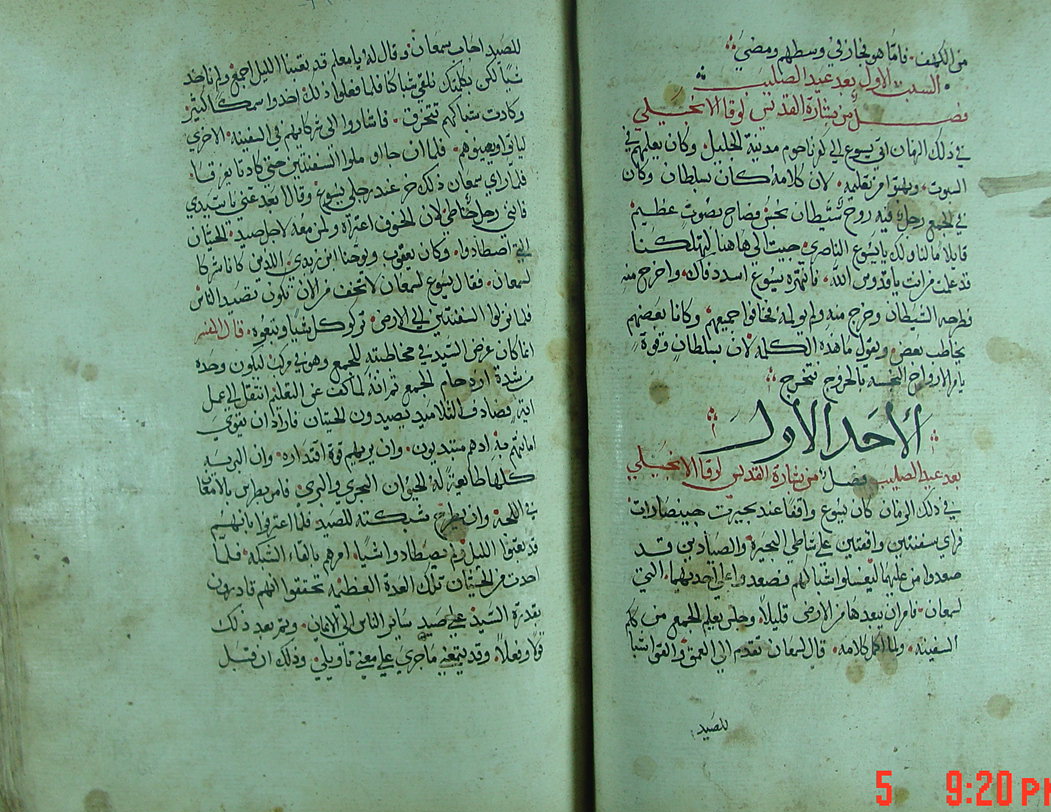 من الكهف. فاما هو فجاز في وسطهم ومضى
السبت الاول بعد عيد الصليب
فصل من بشارة القديس لوقا الانجيلي
في ذلك الزمان اتى يسوع الى كفرناحوم مدينة الجليل. وكان يعلمهم في
السبوت. وبهتوا من تعليمه. لان كلامه كان بسلطان وكان
في المجمع رجل فيه روح شيطان نجس فصاح بصوت عظيم
قايلا ما لنا ولك يا يسوع الناصري جيت الى هاهنا لتهلكنا
قد علمت من انت يا قدوس الله. فانتهره يسوع اسدد فاك واخرج منه
فطرحه الشيطان وخرج منه ولم يولمه فخافوا جميعهم وكانا بعضهم
يخاطب بعض ويقول ما هذه الكلمه لان بسلطان وقوة
يامر الارواح النجسه بالخروج فتخرج
الاحد الاول
بعد عيد الصليب فصل من بشارة القديس لوقا الانجيلي
في ذلك الزمان كان يسوع واقفا عند بحيرت جينصارات
فراى سفنتين واقفتين على شاطي البحيرة والصيادين قد
صعدوا من عليهما ليغسلوا شباكهم فصعد واعلى احديهما. التي
لسمعان. فامر ان يبعدها من الارض قليلا وجلس يعلم الجمع من
السفينة. ولما اكمل كلامه. قال لسمعان تقدم الى العمق والقوا شباككم
للصيد
للصيد اجاب سمعان وقال له يا معلم قد تعبنا الليل اجمع ولم ناخذ
شيا لكن بكلمتك نلقي شباكا فلما فعلوا ذلك اخذوا سمكا كثير
وكادت شباكهم تتخرق. فاشاروا الى شركايهم في السفينه الاخرى
لياتوا ويعينوهم. فلما ان جااو ملوا السفنتين حتى كادتا يغرقا.
فلما راى سمعان ذلك خر عند رجلي يسوع وقال ابعد عني يا سيدي
فانني رجل خاطي لان الخوف اعتراه ولمن معه لاجل صيد الحيتان
التي اصطادوا. وكان يعقوب ويوحنا ابن زبدي اللذين كانا شركا
لسمعان. فقال يسوع لسمعان لا تخف من الان تكون تصيد الناس
فلما نزلوا السفنتين الى الارض تركو كل شيا وتبعوه. قال المفسر
انما كان غرض السيد في مخاطبته للجمع وهو في مركب ليكون وحده
شدة ازدحام الجمع ثم انه لما كف عن التعليم انتقل الى عمل
اية فصادف التلاميد يصيدون الحيتان فاراد ان يقوي
امانتهم وان يريهم قوة اقتداره. وان البريه
كلها طايعة له الحيوان البحري والبري فامر بطرس بالامعان
في اللجة وان يطرح شبكته للصيد فلما اعترفوا بانهم
قد تعبوا الليل ولم يصطادوا شيا. امرهم بالقاء الشبكه فلما
اخذت من الحيتان تلك العدة العظيمه تحققوا انهم قادرون
بقدرة السيد على صيد ساير الناس الى الايمان. وتم بعد ذلك
قولا وفعلا. وقد يتجه ما جرى على معنى تاويلي وذلك ان قبل
5 9:20 PM